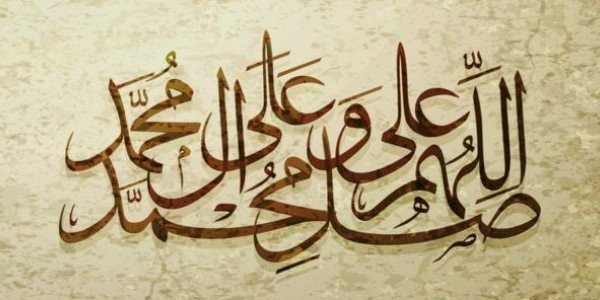 اللّٰهُمَّ صَلِّ عَلٰى مُحَمَّدٍ وَعَلٰى اٰلِ مُحَمَّدٍ